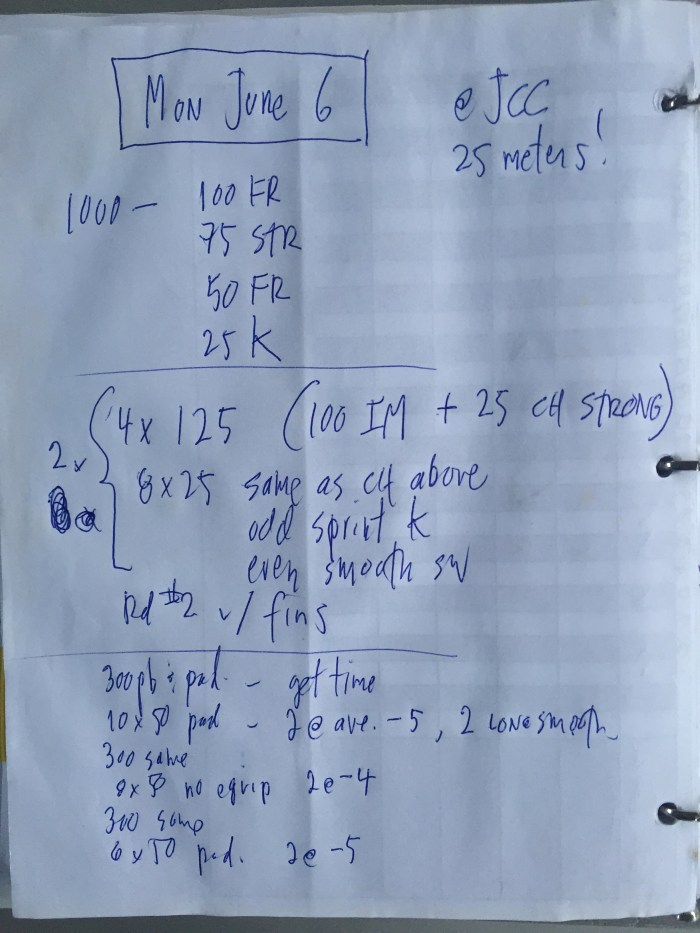 Mon June 6
@ JCC
25 meters!
1000 - 100 FR
75 STR
50 FR
25 K
2x
4 x 125 (100 IM + 25 CH STRONG)
8 x 25 same as CH above
odd sprint K
even smooth SW
Rd #2 w/ fins
300 pb & pad. - get time
10 x 50 pad - 2@ ave. -5, 2 LONG smooth
300 same
8 x 50 no equip 2@ -4
300 same
6 x 50 pad. 2@ -5